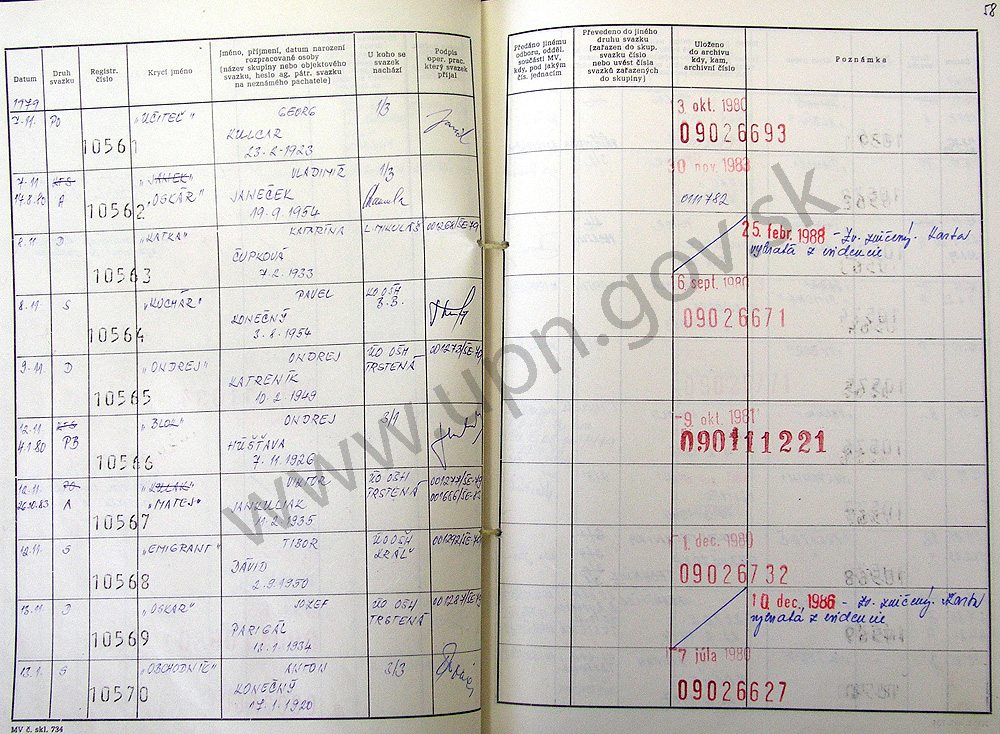 58
Datum
Druh svazku
Registr. číslo
Krycí jméno
Jméno, příjmení, datum narození rozpracované osoby
[název skupiny nebo objektového svazku, heslo ag. pátr. svazku na neznámého pachatele]
U koho se svazek nachází
Podpis oper. prac. který svazek přijal
Předáno jinému odboru, odděl. součásti MV, kdy, pod jakým čís. jednacím
Převedeno do jiného druhu svazku (zařazen do skup. svazku číslo nebo uvést čísla svazků zařazených do skupiny)
Uloženo do archivu kdy, kam, archivní číslo
Poznámka
1979
7-11. PO 10561 „UČITEĽ" GEORG 1/3
KULCAR
23-2-1923
3. okt. 1980
09026693
7-11 VLADIMÍR 1/3
17.8.80 A 10562 „OSKÁR" JANEČEK
19-9-1954
30 nov. 1983
011782
8-11 D 10563 „KATKA" KATARÍNA L. MIKULÁŠ 001268/ŠE-79
ČUPKOVÁ
7-2-1933
25. febr. 1988 - Zv. zničený. Karta
vybratá z evidencie
8-11 S 10564 „KUCHÁR" PAVEL KO OŠH B.B.
KONEČNÝ
3-8-1954
6 sept. 1980
09026671
9-11 D 10565 „ONDREJ" ONDREJ ÚO OŠH TRSTENÁ 001273/ŠE-79
KATRENÍK
10-2-1949
12-11 ONDREJ 3/1
4.1.80 PB 10566 „BLOK" HÚŠŤAVA
7-11-1926
-9. okt. 1981
090111221
12-11 VIKTOR ÚO OŠH 001277/ŠE-79
26.10.83 A 10567 „MATEJ" JANKULIAK TRSTENÁ
11-2-1935
12-11 S 10568 „EMIGRANT" TIBOR ÚO OŠH „KRÁĽ"
DÁVID
2-9-1950
1. dec. 1980
09026732
13-11 D 10569 „OSKAR" JOZEF ÚO OŠH TRSTENÁ 001287/ŠE-79
PARIGÁL
1934
10. dec. 1986 - Zv. zničený. Karta
vybratá z evidencie
10570 „OBCHODNÍK" ANTON 2/3
KONEČNÝ
17-1-1920
7 júla 1980
09026627
MV č. skl. 734
www.upn.gov.sk